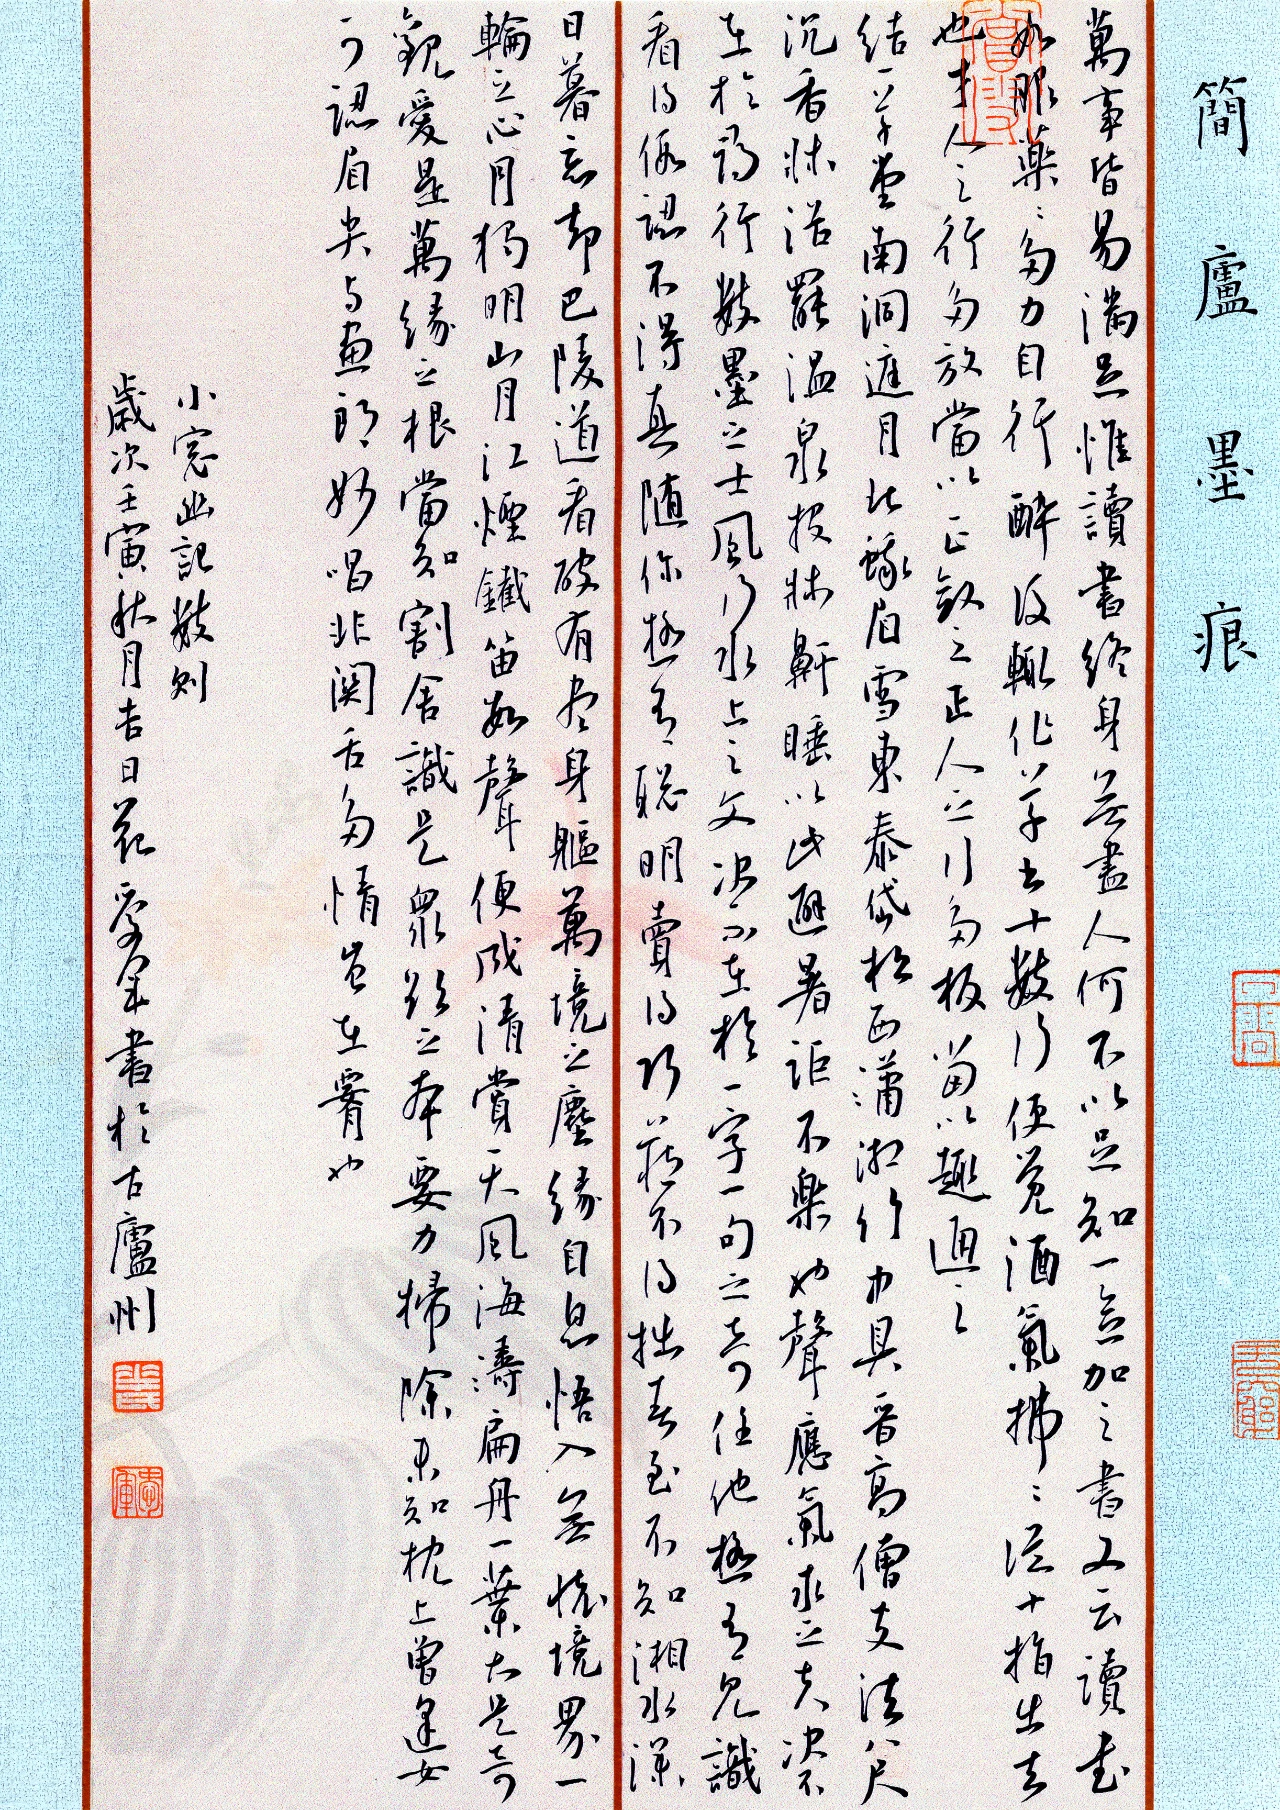 簡廬墨痕
萬事皆易滿足惟讀書終身無盡人何不以足知一念加之書又云讀書
如服藥藥多力自行醉後輒作草書十數行便覺酒氣拂拂從十指出去
也才人之行多放當以正斂之正人之行多板當以趣通之
結草堂南洞庭月北蛾眉雪東泰岱松西瀟湘竹中具晉高僧支法八尺
沉香牀浴罷溫泉投牀鼾睡以此避暑詎不樂也聲應氣求之夫決不
在於尋行數墨之士風行水上之文決不在於一字一句之奇任他極有見識
看得假認不得真隨你極有聰明賣得巧藏不得拙春至不知湘水深
日暮忘却巴陵道看破有盡身軀萬境之塵緣自息悟入無懷境界一
輪之心月獨明山月江煙鐵笛數聲便成清賞天風海濤扁舟一葉大是奇
觀愛是萬緣之根當知割舍識是眾欲之本要力掃除未知枕上曾逢女
可認眉尖與畫郎妙唱非關舌多情豈在腰也
小窗幽記數則
歲次壬寅秋月吉日 書於古廬州